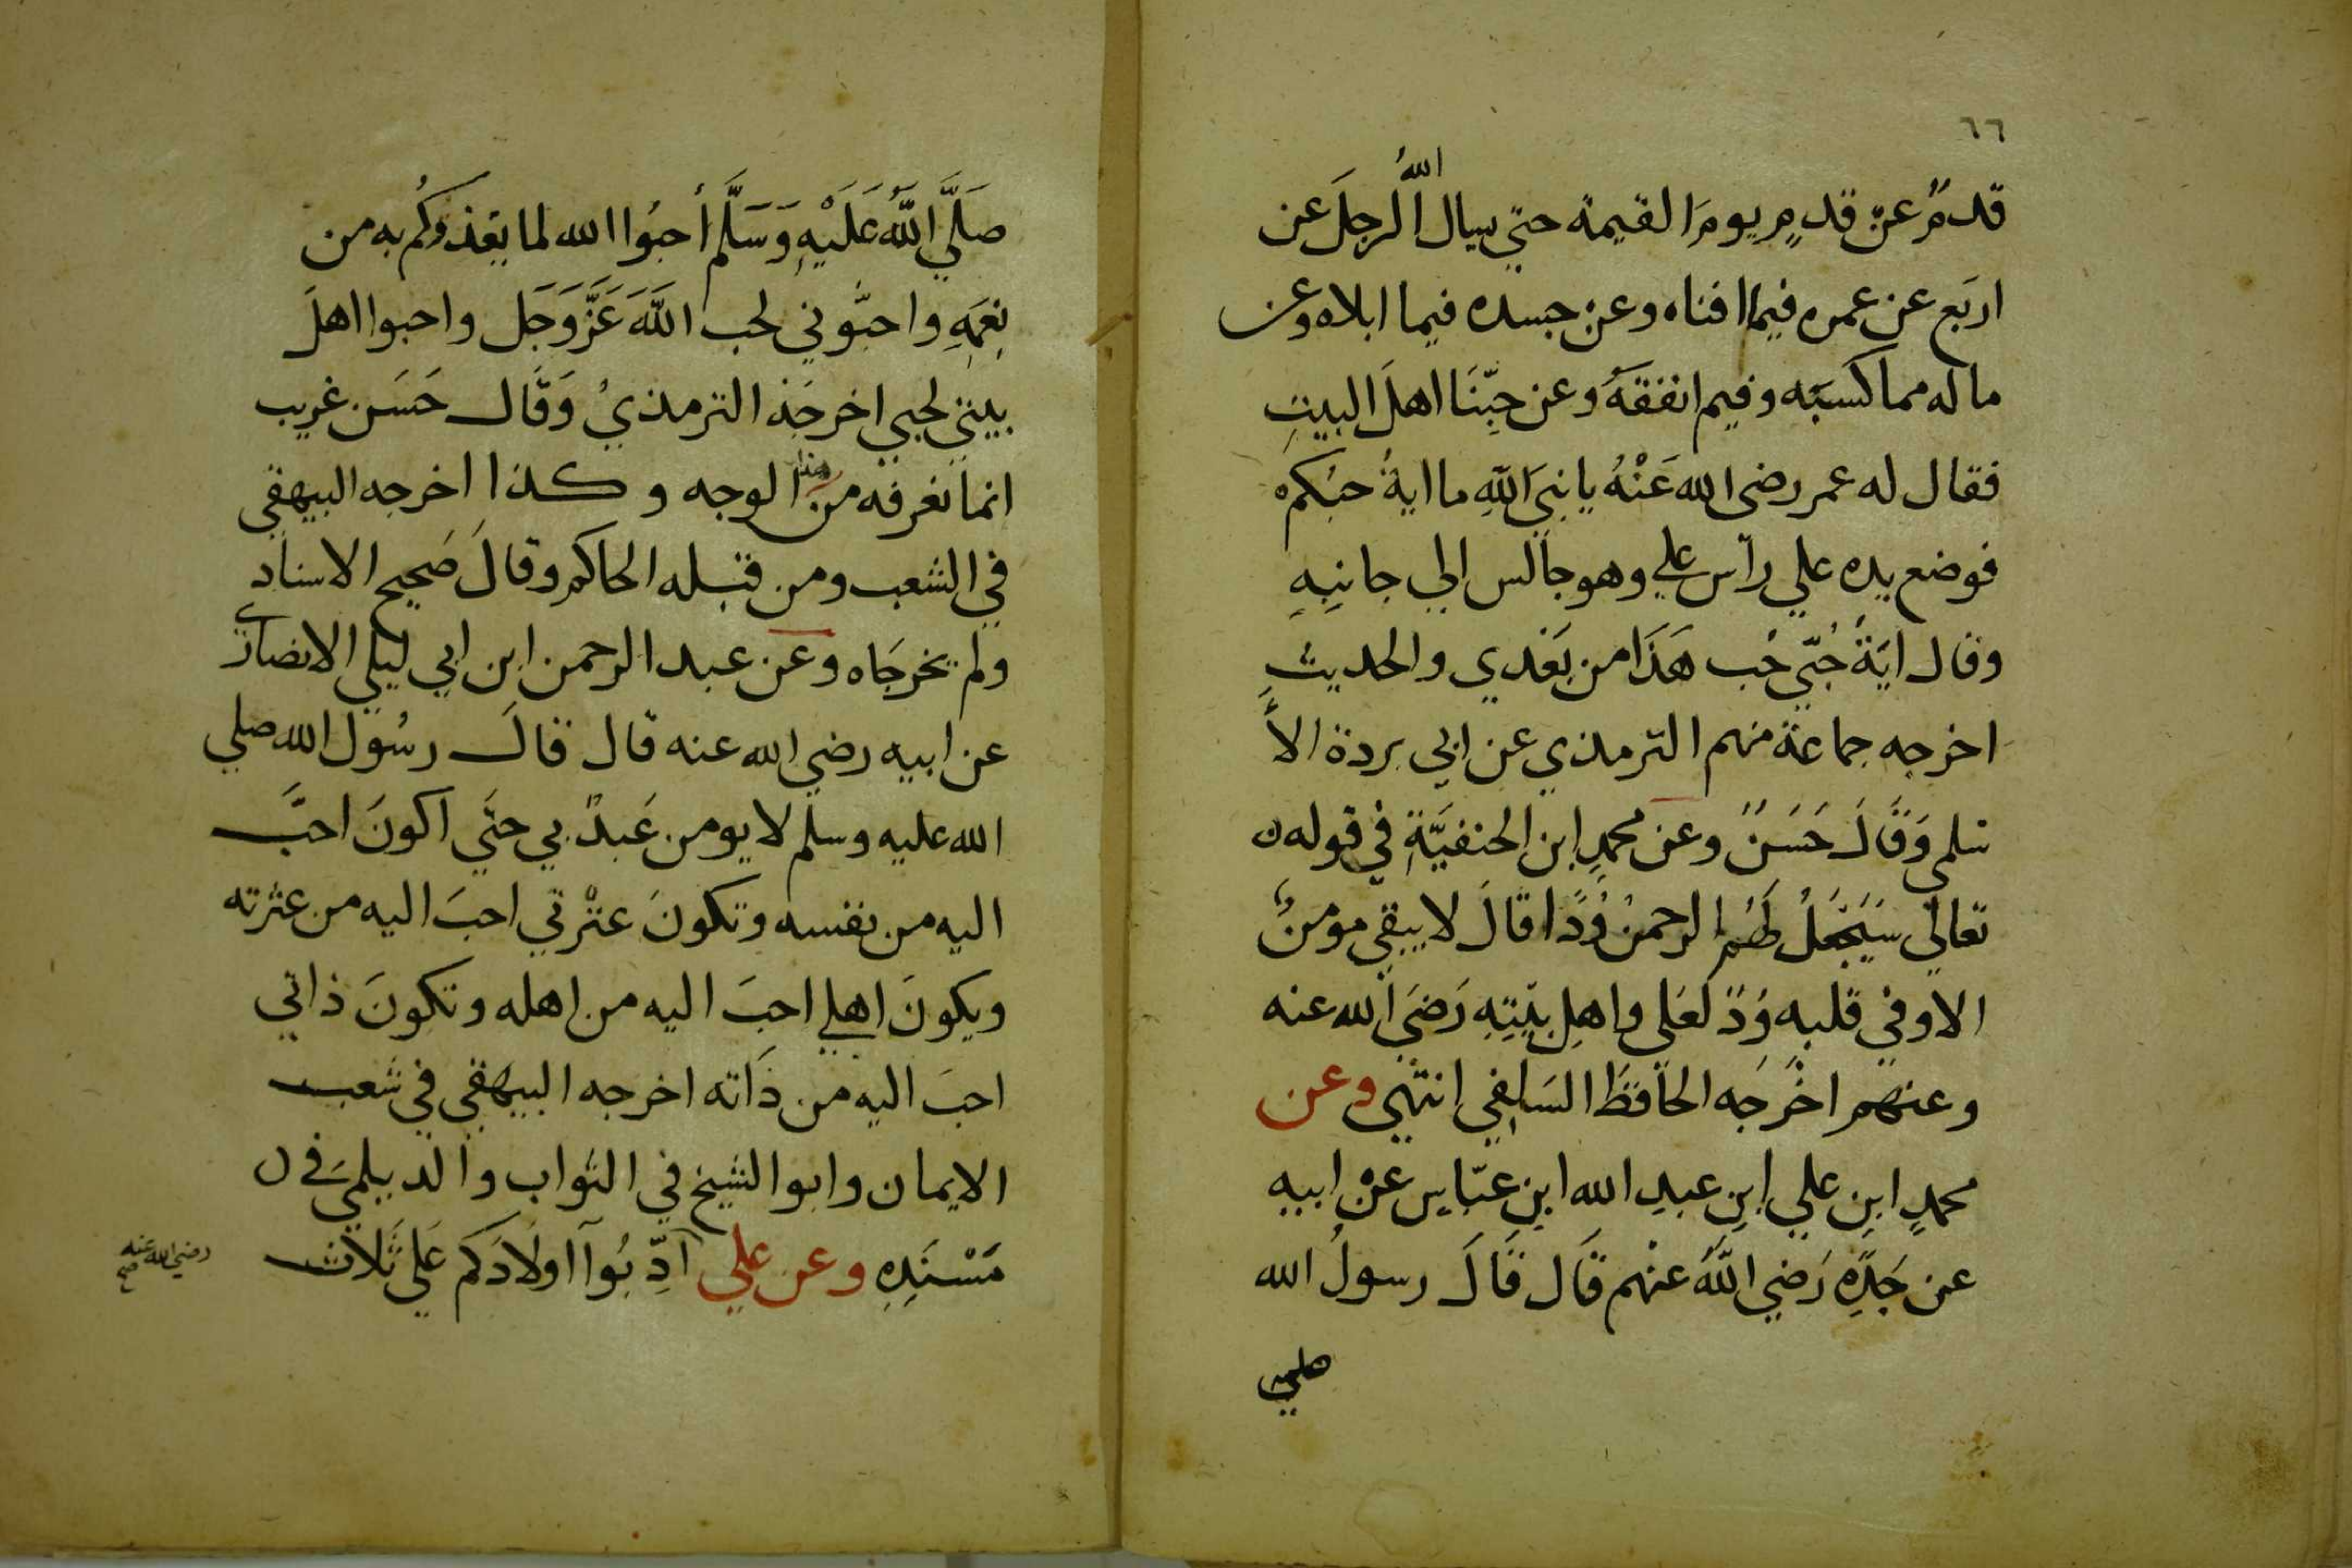 ٦٦
قدمٌ عن قدمٍ يومَ القيمة حتي يسال اللهُ الرجلَ عن
اربَع عن عمره فيما افناه وعن جسده فيما ابلاه وعن
ماله مما كسبَه وفيم انفقهُ وعن حبِّنَا اهلَ البيتِ
فقال له عمر رضى الله عَنْهُ يا نبيَ اللهِ ما ايةُ حبُكم
فوضع يده علي رأس علي وهو جالس الي جانِبِهِ
وقال ايَةُ حُبّي حُب هَذَا من بَعْدي والحديث
اخرجه جماعة منهم الترمذي عن ابي بردة الاَ
سلمي وَقَالَ حَسَنٌ وعن محمدِ ابن الحنفيَّةِ في قوله
تعالي سَيَجْعَلُ لَهُم الرحمنُ وُدًا قالَ لا يبقي مومنٌ
الا وفي قلبه وُدٌ لعَلي واهلِ بَيْتِهِ رَضيَ الله عنه
وعنهم اخْرَجَه الحافظَ السَلِفي انتهي وعن
محمدٍ ابنِ علي ابنِ عبدِ الله ابنِ عبّاسٍ عنْ ابيهِ
عن جَدِّهِ رَضي اللَّهُ عنْهم قَال قَالَ رسولُ الله
صلي
صَلَّي اللَّهُ عَلَيْهِ وَسَلَّم أحبُوا الله لما يغذوكُم به من
نِعَمِهِ واحبُّوني لحب اللَّهَ عَزَّ وَجَل واحبوا اهلَ
بيتي لحبي اخرجَه الترمذيُ وَقَال حَسَن غريب
انما نعرفه من هذا الوجه وكذا اخرجه البيهقي
في الشعب ومن قبله الحاكم وقالَ صَحيح الاسناد
ولم يخرجَاه وعَن عبد الرحمن ابن ابي ليلي الانصاري
عن ابيه رضي الله عنه قال قالَ رسُول الله صلي
الله عليه وسلم لا يومن عَبدٌ بي حتَي اكونَ احبَّ
اليه من نفسه وتكونَ عتْرتي احبَ اليه من عترته
ويكونَ اهلي احبَ اليه من اهله وتكونَ ذاتي
احبَ اليه من ذَاته اخرجه البيهقي في شعب
الايمان وابو الشيخ في الثواب والديلميَ في
مَسْنَدِهِ وعن علي أدِّبُوآ اولَادَكم عَلي ثَلَاث
رضي الله عنه صح